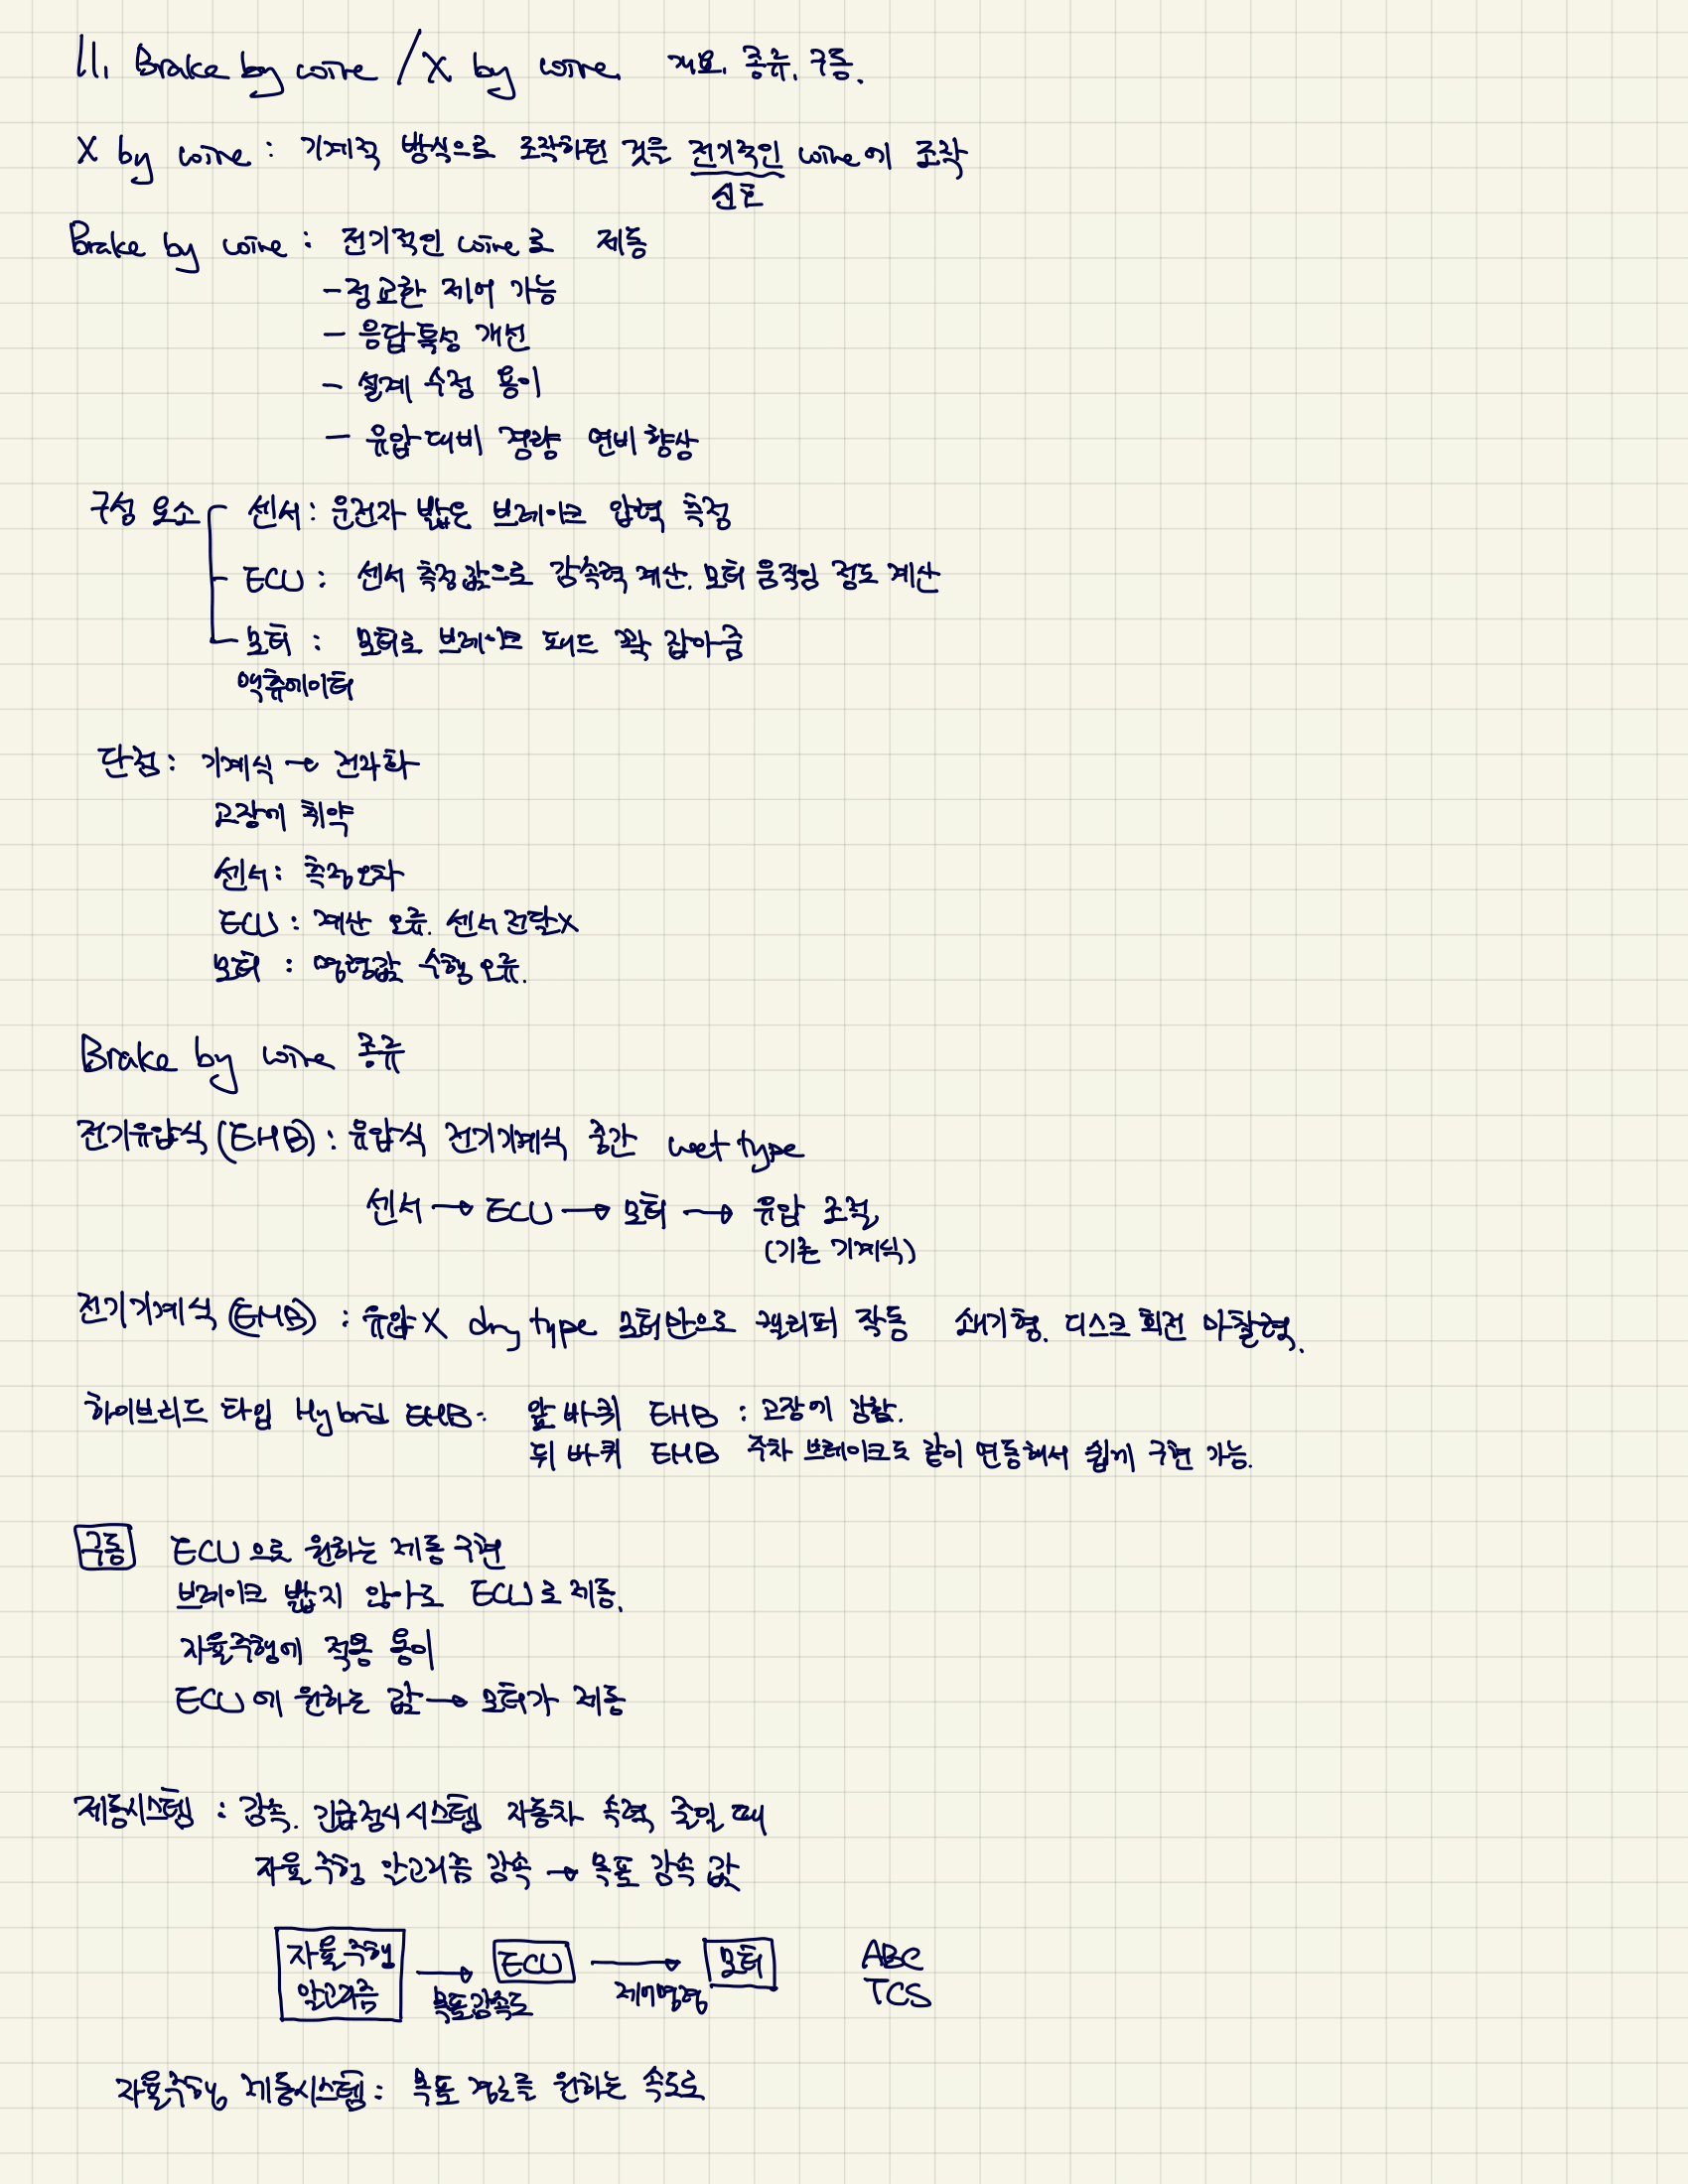 11. Brake by wire / X by wire 개요. 종류. 구동.
X by wire : 기계적 방식으로 조작하던 것을 전기적인 wire에 조작
신호
Brake by wire : 전기적인 wire로 제동
- 정교한 제어 가능
- 응답특성 개선
- 설계 수정 용이
- 유압 대비 경량 연비 향상
구성 요소 센서 : 운전자 밟은 브레이크 압력 측정
ECU : 센서 측정값으로 감속력 계산. 모터 움직임 정도 계산
모터 : 모터로 브레이크 패드 꽉 잡아줌
액츄에이터
단점 : 기계식 → 전자화
고장에 취약
센서 : 측정오차
ECU : 계산 오류. 센서 전달X
모터 : 명령값 수행 오류.
Brake by wire 종류
전기유압식(EHB) : 유압식 전기기계식 중간 wet type
센서 → ECU → 모터 → 유압 조절
(기존 기계식)
전기기계식(EMB) : 유압X dry type 모터만으로 캘리퍼 작동 쐐기형. 디스크 회전 마찰력.
하이브리드 타입 Hybrid EMB. 앞 바퀴 EHB : 고장에 강함.
뒤 바퀴 EMB 주차 브레이크도 같이 연동해서 쉽게 구현 가능.
구동 ECU으로 원하는 제동 구현
브레이크 밟지 않아도 ECU로 제동.
자율주행에 적용 용이
ECU에 원하는 값 → 모터가 제동
제동시스템 : 감속. 긴급정지시스템 자동차 속력 줄일 때
자율주행 알고리즘 감속 → 목표 감속 값
자율주행 알고리즘 → ECU → 모터 ABC
목표감속도 제어명령 TCS
자율주행 제동시스템 : 목표 경로를 원하는 속도로